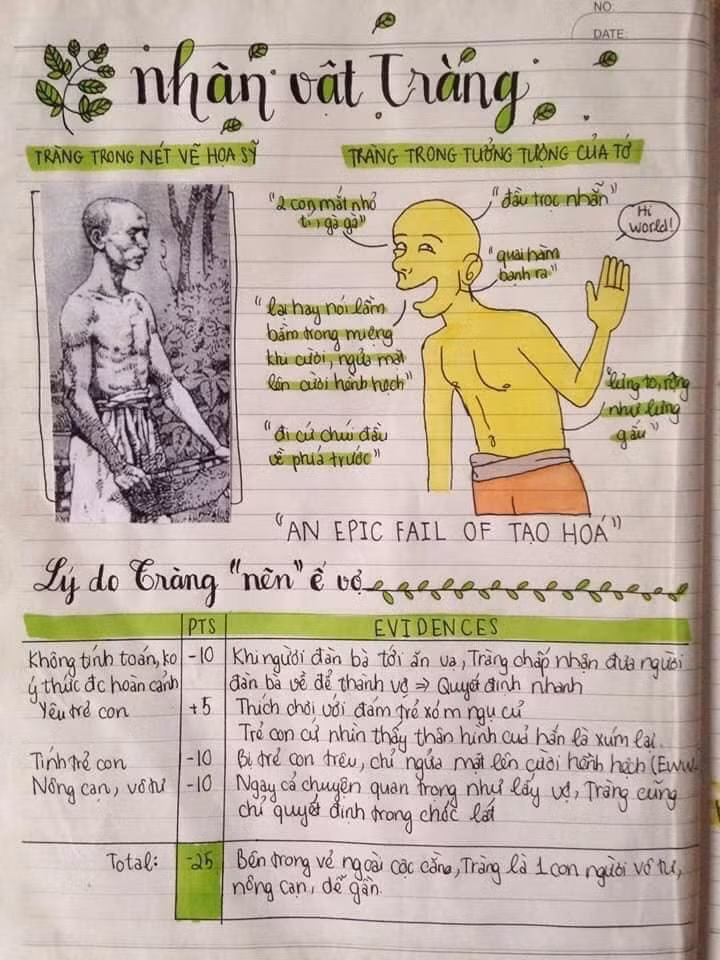 NO:
DATE:
nhân vật Tràng
TRÀNG TRONG NÉT VẼ HỌA SỸ
TRÀNG TRONG TƯỞNG TƯỢNG CỦA TỚ
"2 con mắt nhỏ
tí, gà gà"
"đầu trọc nhẵn"
Hi
World!
"quai hàm
bạnh ra"
"lại hay nói lảm
bảm trong miệng
khi cười, ngửa mặt
lên cười hềnh hệch"
"lưng to, rộng
như lưng
gấu"
"đi cứ chúi đầu
về phía trước"
"AN EPIC FAIL OF TẠO HOÁ"
Lý do Tràng "nên" ế vợ
PTS
EVIDENCES
Không tính toán, ko
ý thức đc hoàn cảnh
-10
Khi người đàn bà tới ăn vạ, Tràng chấp nhận đưa người
đàn bà về để thành vợ => Quyết định nhanh
Yêu trẻ con
+5
Thích chơi với đám trẻ xóm ngụ cư
Trẻ con cứ nhìn thấy thân hình của hắn là xúm lại.
Tính trẻ con
-10
Bị trẻ con trêu, chỉ ngửa mặt lên cười hềnh hệch (Eww
Nông cạn, vô tư
-10
Ngay cả chuyện quan trọng như lấy vợ, Tràng cũng
chỉ quyết định trong chốc lát
Total:
-25
Bên trong vẻ ngoài cộc cằn, Tràng là 1 con người vô tư,
nông cạn, dễ gần.